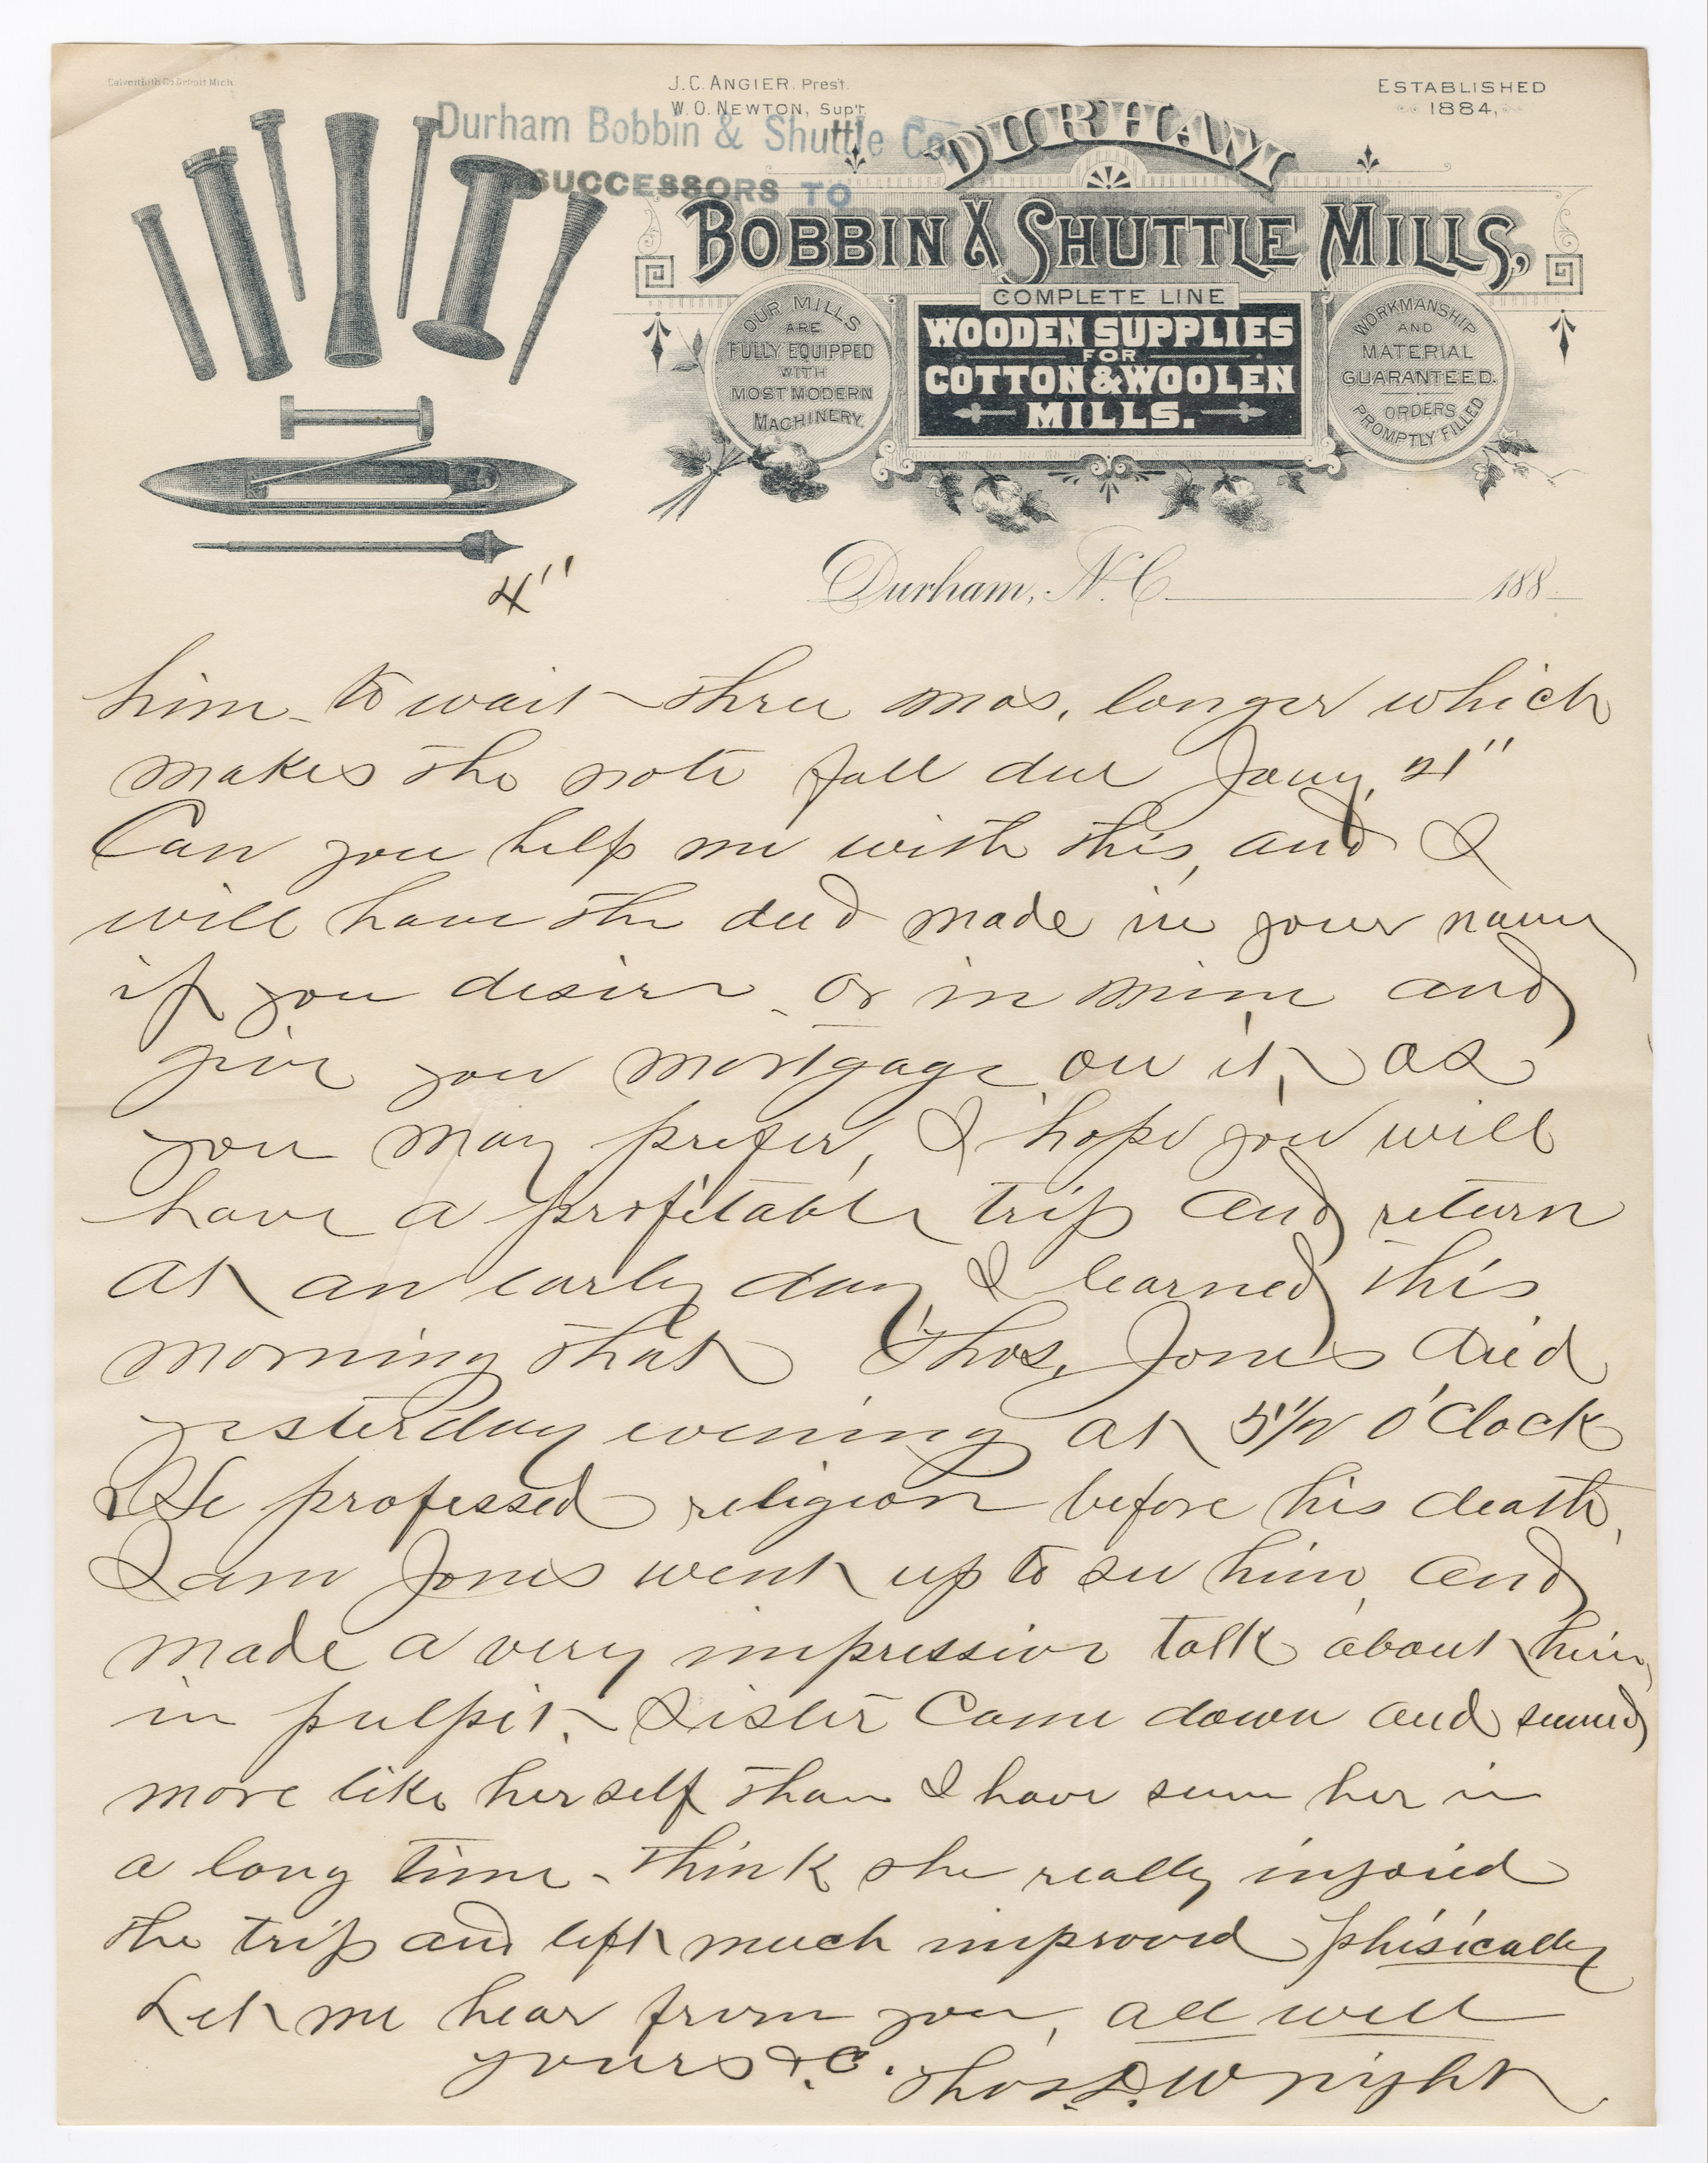 Calvert Lith Co Detroit Mich.
J.C. ANGIER, Prest.
W.O. NEWTON, Supt.
ESTABLISHED
1884,
Durham Bobbin & Shuttle Co.
SUCCESSORS TO
DURHAM
BOBBIN & SHUTTLE MILLS,
COMPLETE LINE
WOODEN SUPPLIES
FOR
COTTON & WOOLEN
MILLS.
OUR MILLS
ARE
FULLY EQUIPPED
WITH
MOST MODERN
MACHINERY.
WORKMANSHIP
AND
MATERIAL
GUARANTEED.
ORDERS
PROMPTLY FILLED
Durham, N.C. 188
4"
him - to wait three mos. longer which
makes the note fall due Jany, 21"
Can you help me with this, and I
will have the deed made in your name
if you desire - or in mine, and
give you mortgage on it, as
you may prefer, I hope you will
have a profitable trip and return
at an early day, I learned this
morning that Thos, Jones died
yesterday evening at 5 1/2 O'Clock
He professed religion before his death,
Sam Jones went up to see him, and
made a very impressive talk about him,
in pulpit. Sister Came down and seemed
more like herself than I have seen her in
a long time - think she really injoied
the trip and left much improved phisically
Let me hear from you, all well
yours &.C. Thos. D. Wright